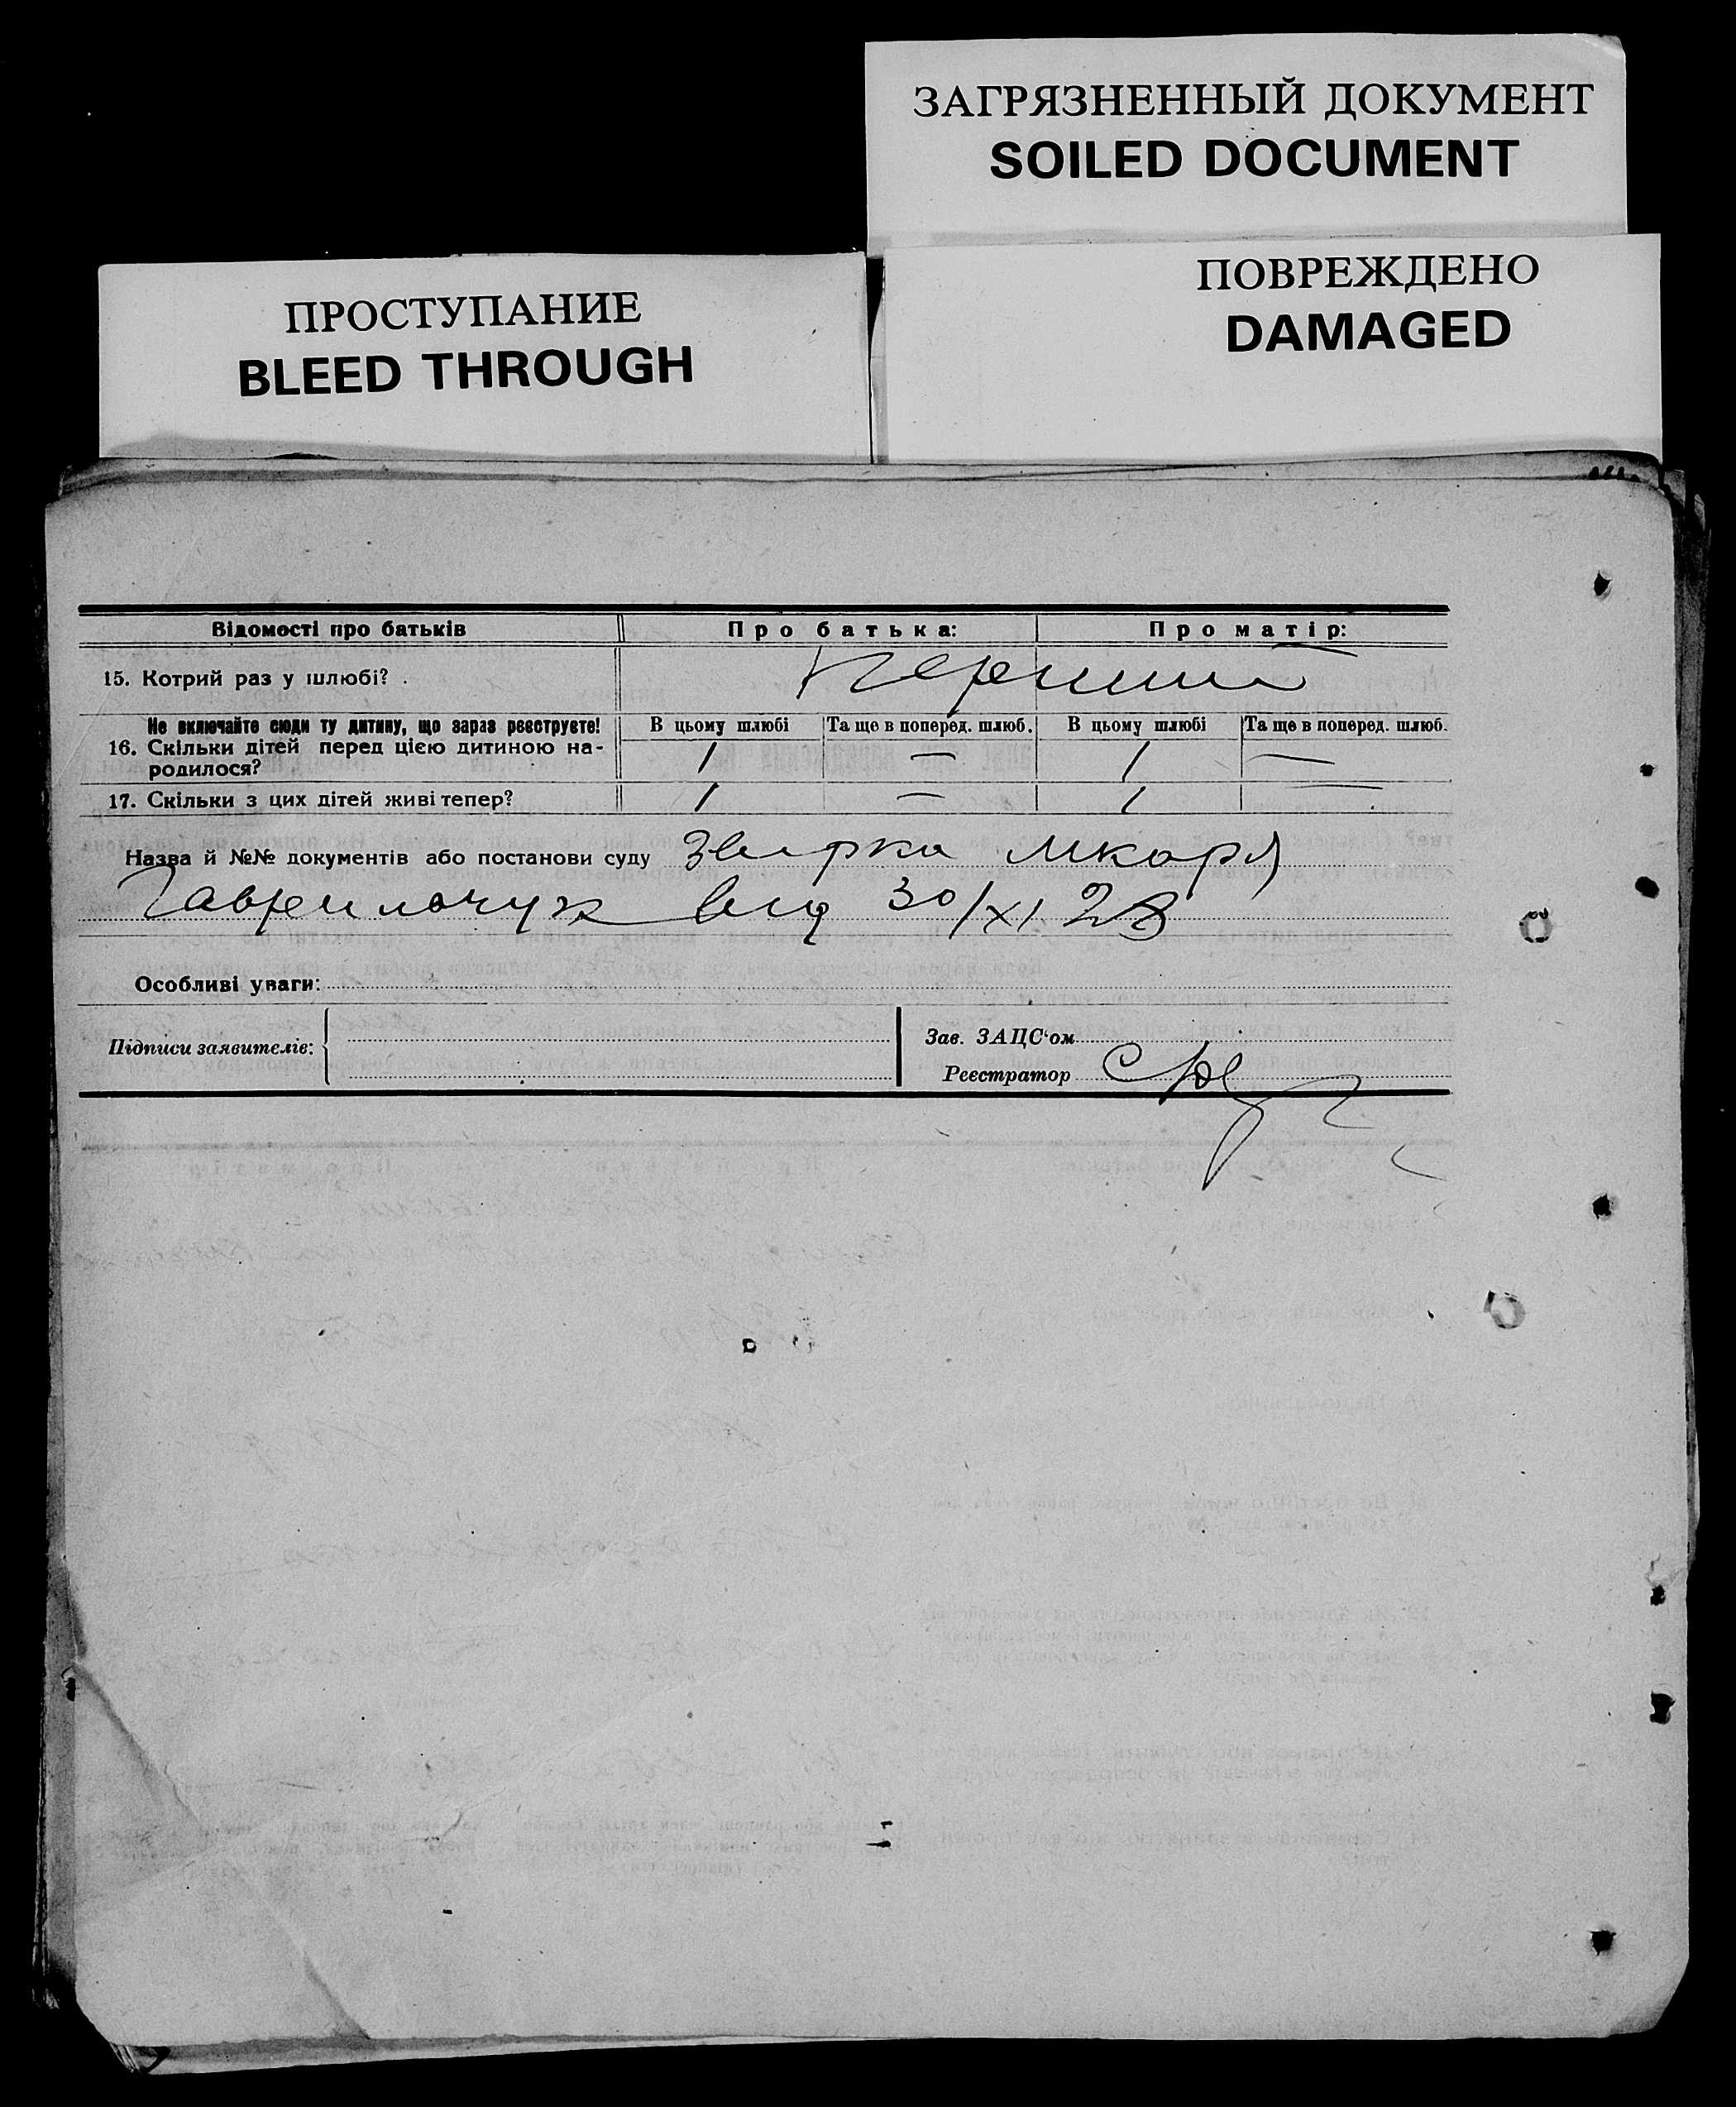 ЗАГРЯЗНЕННЫЙ ДОКУМЕНТ
SOILED DOCUMENT
ПОВРЕЖДЕНО
DAMAGED
ПРОСТУПАНИЕ
BLEED THROUGH
Відомості про батьків Про батька: Про матір:
15. Котрий раз у шлюбі? . Перший
Не включайте сюди ту дитину, що зараз реєструєте! В цьому шлюбі Та ще в поперед. шлюб. В цьому шлюбі Та ще в поперед. шлюб.
16. Скільки дітей перед цією дитиною на-
родилося? 1 — 1 —
17. Скільки з цих дітей живі тепер? 1 — 1 —
Назва й №№ документів або постанови суду
Гаврильчук від 30/XI 28
Особливі уваги:
Підписи заявителів:
Зав. ЗАЦС'ом
Реєстратор